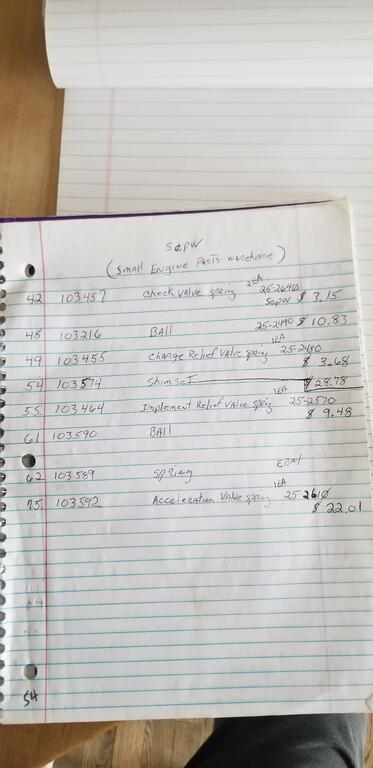 SEPW
(Small Engine Parts Warehouse)
42 103457 Check Valve Spring 2EA 25-2640 SEPW $ 3.15
48 103216 BALL 25-2490 $ 10.83
49 103455 Charge Relief Valve Spring 1EA 25-2480 $ 3.68
54 103574 Shim SeT $28.78
55 103464 Implement Relief Valve Spring 1EA 25-2570 $ 9.48
61 103590 BALL
62 103589 Spring
75 103592 Acceleration Valve Spring 1EA 25-2610 $ 22.01
54